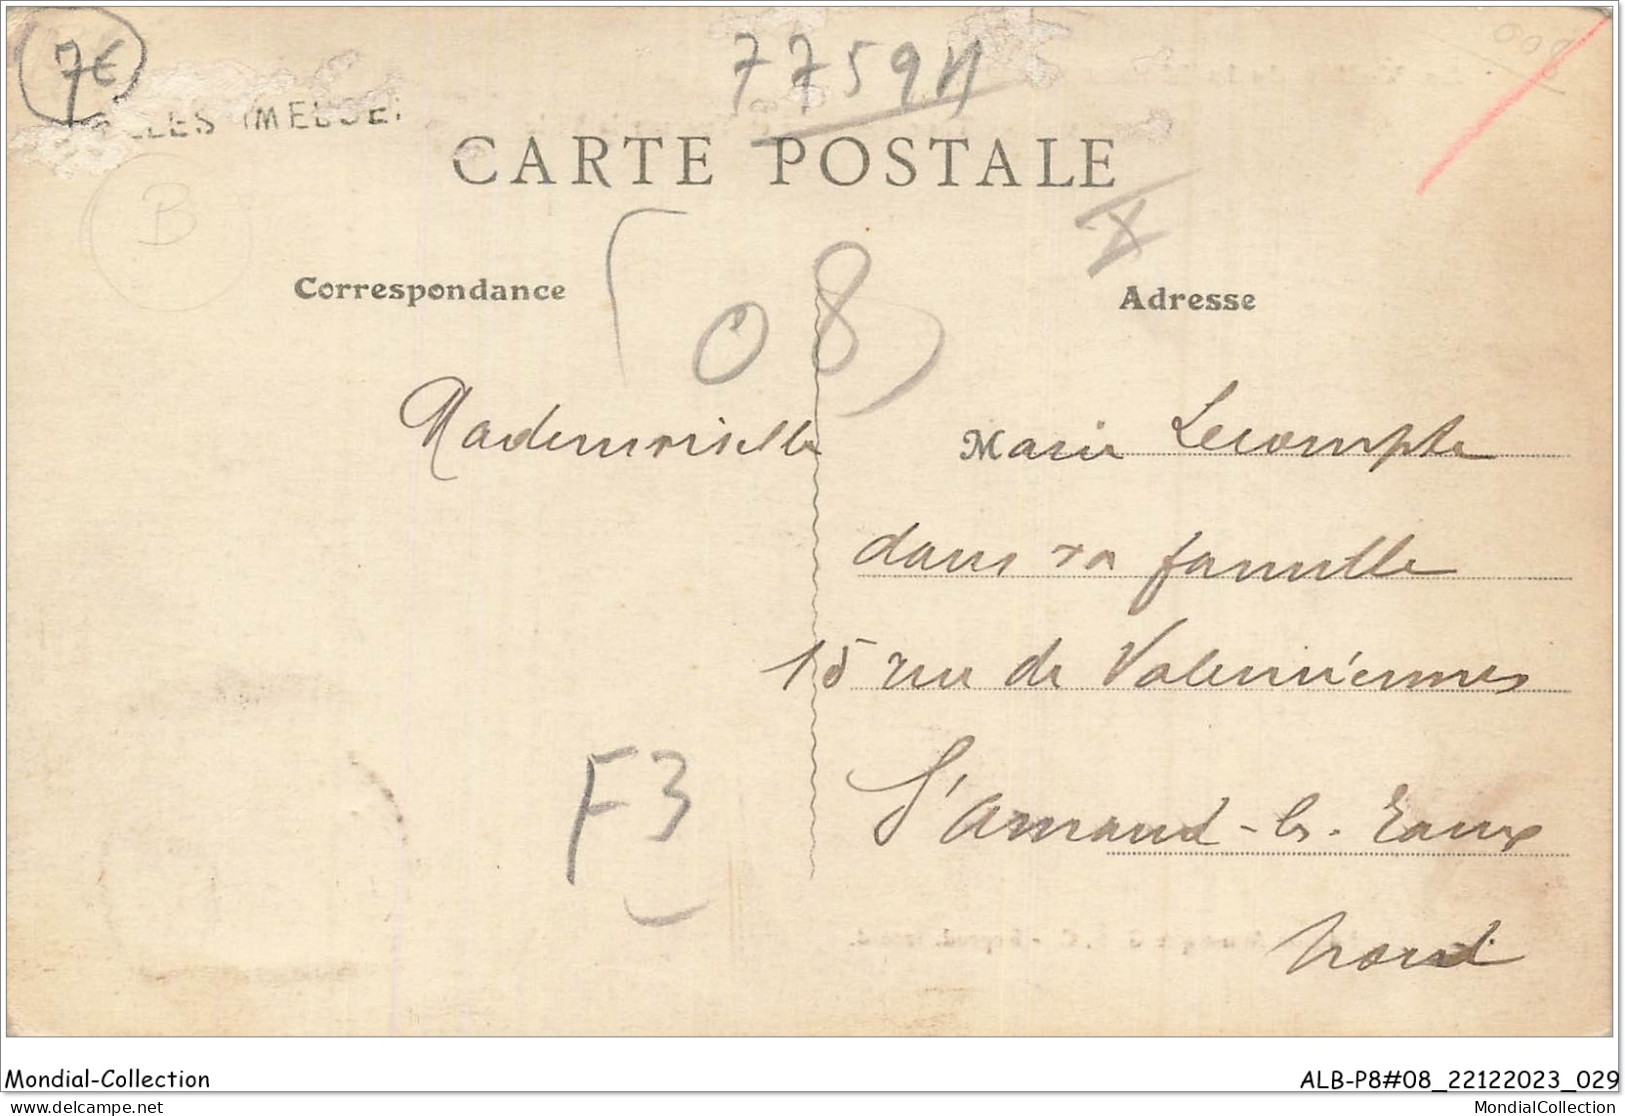 7€
7759N
LLES (MEUSE)
CARTE POSTALE
B
X
Correspondance
Adresse
(08)
Mademoiselle Marie Lecompte
dans sa famille
15 rue de Valenciennes
St Amand-les-Eaux
Nord
F3
Mondial-Collection
ALB-P8#08_22122023_029
delcampe.net
MondialCollection